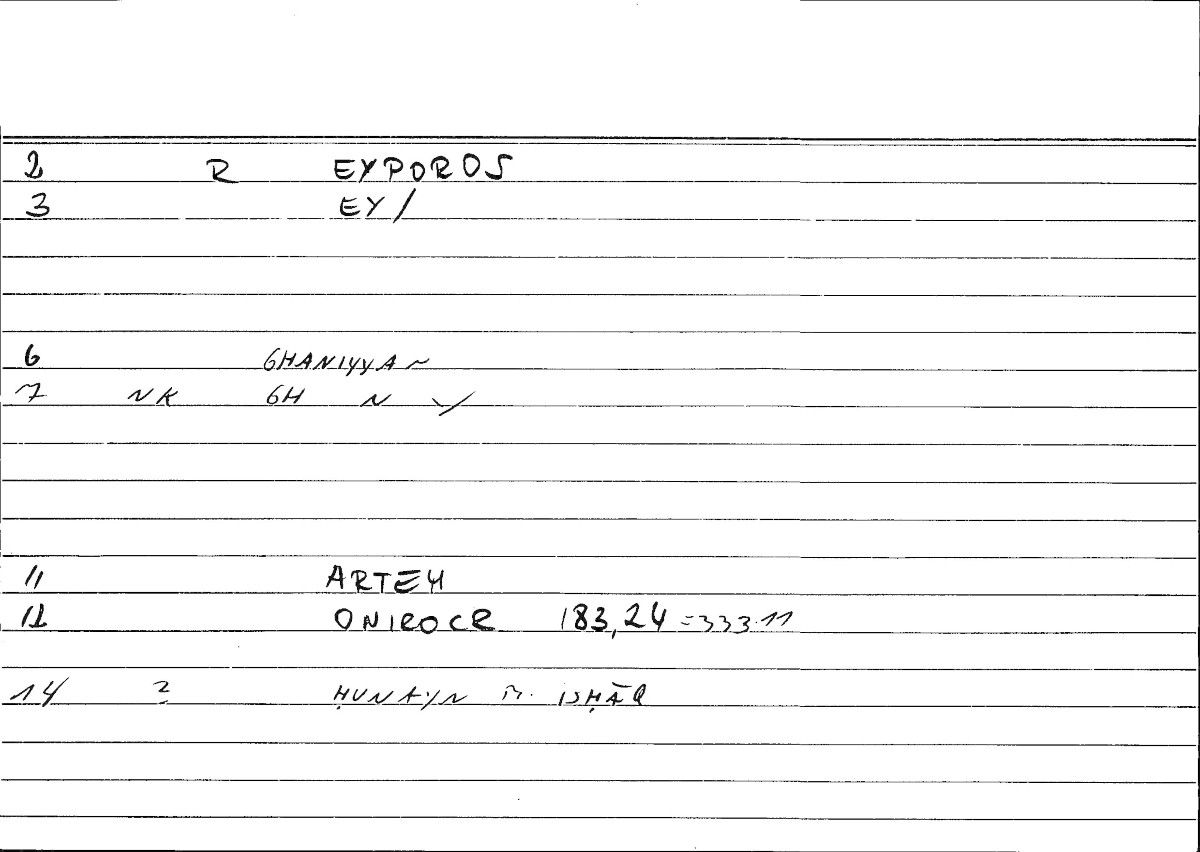 2 R EYPOROS
3 EY/
6 GHANIYYAN
7 NK GH N
11 ARTEM
12 ONIROCR 183,24 = 333.11
14 ? ḤUNAYN B. ISḤĀQ